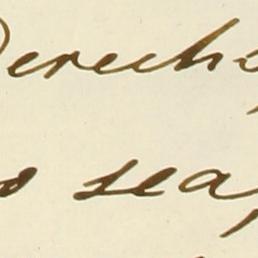 Derecho
o sea,